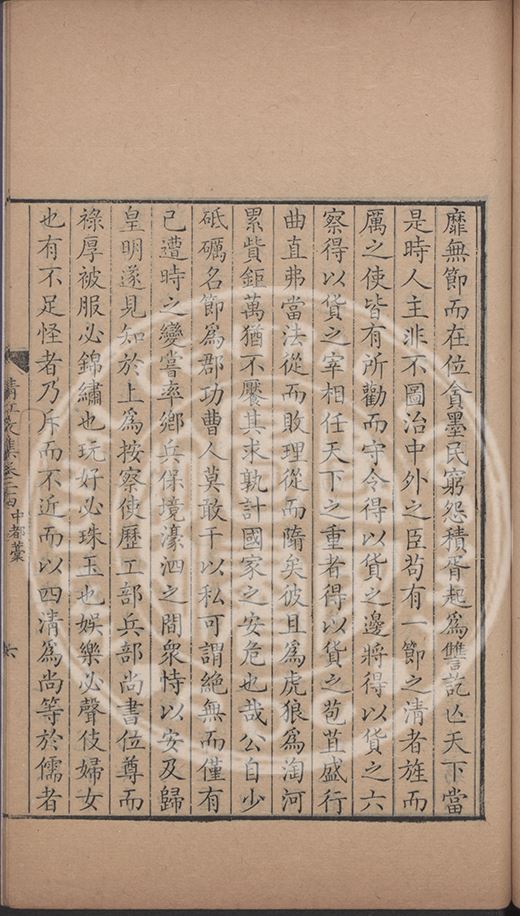 靡無節而在位貪墨民窮怨積胥起爲讐訖亾天下當
是時人主非不圖治中外之臣苟有一節之清者旌而
厲之使皆有所勸而守令得以貨之邊將得以貨之六
察得以貨之宰相任天下之重者得以貨之苞苴盛行
曲直弗當法從而敗理從而隋矣彼且爲虎狼爲淘河
累貲鉅萬猶不饜其求孰計國家之安危也哉公自少
砥礪名節爲郡功曹人莫敢干以私可謂絶無而僅有
已遭時之變嘗率鄉兵保境濠泗之間衆恃以安及歸
皇明遂見知於上爲按察使歷工部兵部尚書位尊而
祿厚被服必錦繡也玩好必珠玉也娛樂必聲伎婦女
也有不足怪者乃斥而不近而以四清爲尚等於儒者
清江文集卷二百 中都藁 六